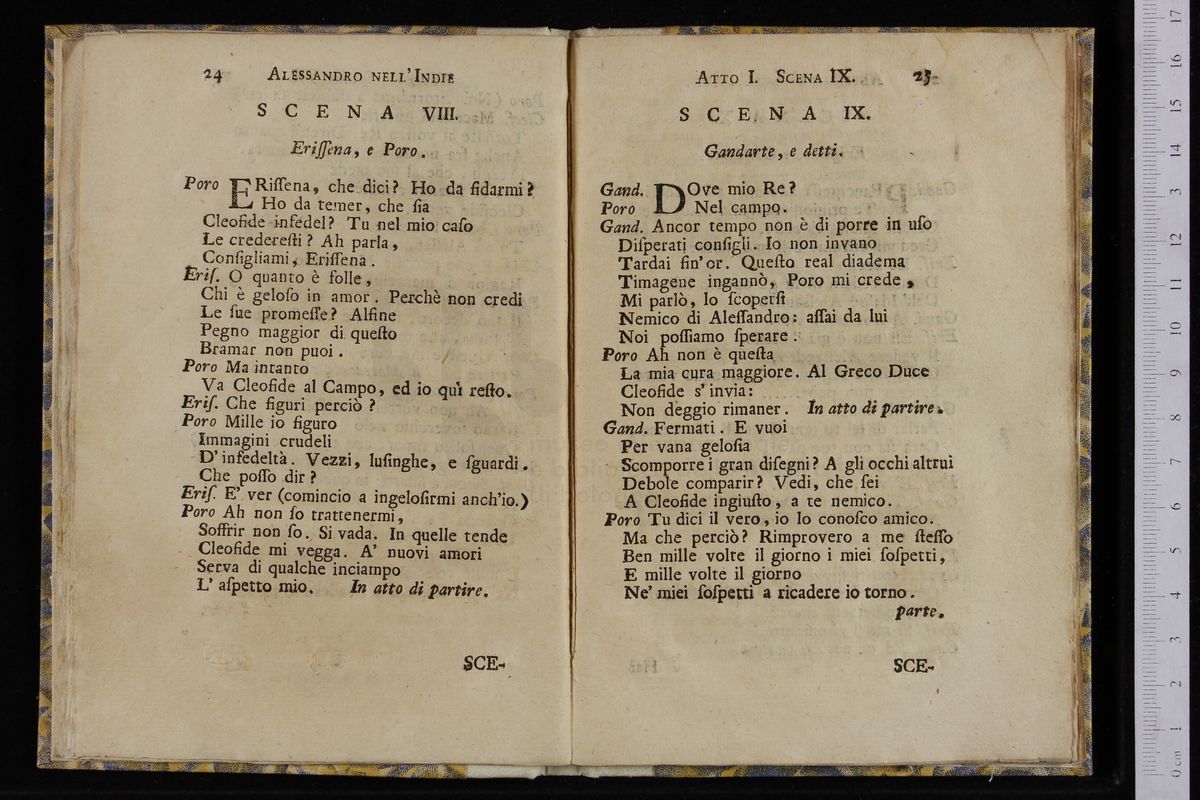 24 ALESSANDRO NELL'INDIE
SCENA VIII.
Eriſſena, e Poro.
Poro ERiſſena, che dici? Ho da fidarmi?
Ho da temer, che ſia
Cleofide infedel? Tu nel mio caſo
Le crederеſti? Ah parla,
Conſigliami, Eriſſena.
Eriſ. O quanto è folle,
Chi è geloſo in amor. Perchè non credi
Le ſue promeſſe? Alfine
Pegno maggior di queſto
Bramar non puoi.
Poro Ma intanto
Va Cleofide al Campo, ed io quì reſto.
Eriſ. Che figuri perciò?
Poro Mille io figuro
Immagini crudeli
D'infedeltà. Vezzi, luſinghe, e ſguardi.
Che poſſo dir?
Eriſ. E' ver (comincio a ingeloſirmi anch'io.)
Poro Ah non ſo trattenermi,
Soffrir non ſo. Si vada. In quelle tende
Cleofide mi vegga. A' nuovi amori
Serva di qualche inciampo
L' aſpetto mio. In atto di partire.
SCE-
ATTO I. SCENA IX. 25
SCENA IX.
Gandarte, e detti.
Gand. DOve mio Re?
Poro Nel campo.
Gand. Ancor tempo non è di porre in uſo
Diſperati conſigli. Io non invano
Tardai fin'or. Queſto real diadema
Timagene ingannò, Poro mi crede,
Mi parlò, lo ſcoperſi
Nemico di Aleſſandro: aſſai da lui
Noi poſſiamo ſperare.
Poro Ah non è queſta
La mia cura maggiore. Al Greco Duce
Cleofide s'invia:
Non deggio rimaner. In atto di partire.
Gand. Fermati. E vuoi
Per vana geloſia
Scomporre i gran diſegni? A gli occhi altrui
Debole comparir? Vedi, che ſei
A Cleofide ingiuſto, a te nemico.
Poro Tu dici il vero, io lo conoſco amico.
Ma che perciò? Rimprovero a me ſteſſo
Ben mille volte il giorno i miei ſoſpetti,
E mille volte il giorno
Ne' miei ſoſpetti a ricadere io torno.
parte.
SCE-
17
16
15
14
13
12
11
10
9
8
7
6
5
4
3
2
1
0 cm